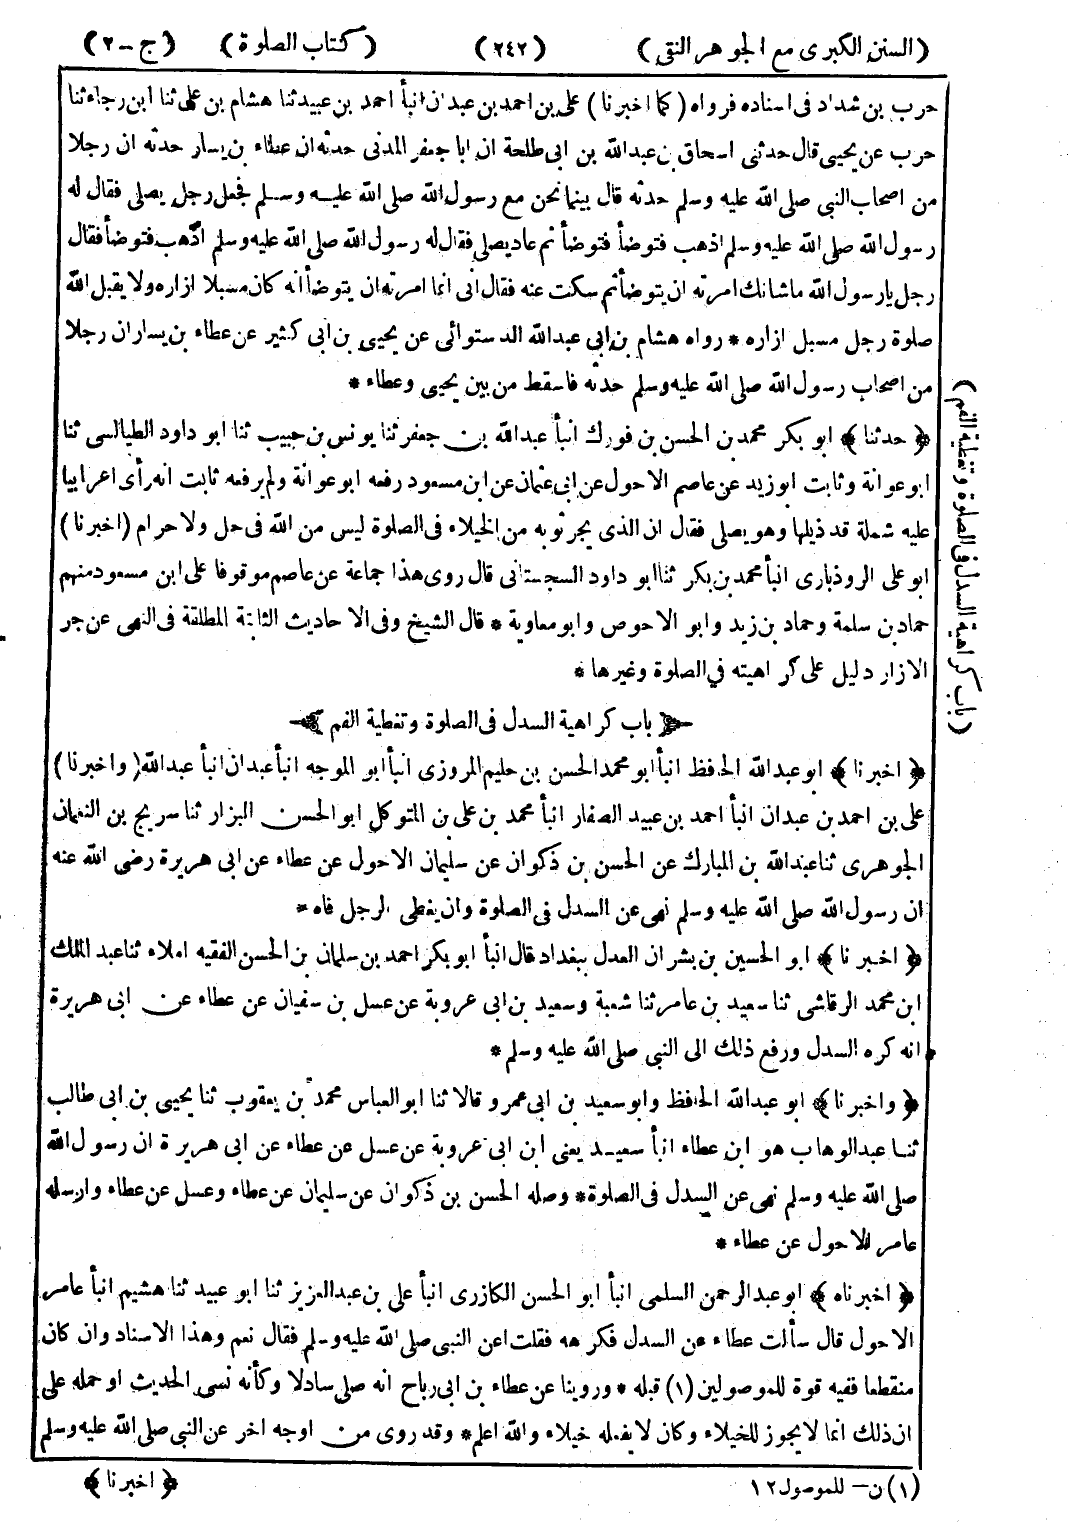 (السنن الكبرى مع الجوهر النقى) (٢٤٢) (كتاب الصلوة) (ج-٢)
حرب بن شداد فى اسناده فرواه (كما اخبرنا) على بن احمد بن عبدان انبأ احمد بن عبيد ثنا هشام بن على ثنا ابن رجاء ثنا
حرب عن يحيى قال حدثنى اسحاق بن عبدالله بن ابى طلحة ان ابا جعفر المدنى حدثه ان عطاء بن يسار حدثه ان رجلا
من اصحاب النبى صلى الله عليه وسلم حدثه قال بينما نحن مع رسول الله صلى الله عليه وسلم فجعل رجل يصلى فقال له
رسول الله صلى الله عليه وسلم اذهب فتوضأ فتوضأ ثم عاد يصلى فقال له رسول الله صلى الله عليه وسلم اذهب فتوضأ فقال
رجل يا رسول الله ما شانك امرته ان يتوضأ ثم سكت عنه فقال انى انما امرته ان يتوضأ انه كان مسبلا ازاره ولا يقبل الله
صلوة رجل مسبل ازاره * رواه هشام بن ابى عبدالله الدستوائى عن يحيى بن ابى كثير عن عطاء بن يسار ان رجلا
من اصحاب رسول الله صلى الله عليه وسلم حدثه فاسقط من بين يحيى وعطاء *
﴿حدثنا﴾ ابو بكر محمد بن الحسن بن فورك انبأ عبدالله بن جعفر ثنا يونس بن حبيب ثنا ابو داود الطيالسى ثنا
ابو عوانة وثابت ابو زيد عن عاصم الاحول عن ابى عثمان عن ابن مسعود رفعه ابو عوانة ولم يرفعه ثابت انه رأى اعرابيا
عليه شملة قد ذيلها وهو يصلى فقال ان الذى يجر ثوبه من الخيلاء فى الصلوة ليس من الله فى حل ولا حرام (اخبرنا)
ابو على الروذبارى انبأ محمد بن بكر ثنا ابو داود السجستانى قال روى هذا جماعة عن عاصم موقوفا على ابن مسعود منهم
حماد بن سلمة وحماد بن زيد وابو الاحوص وابو معاوية * قال الشيخ وفى الاحاديث الثابتة المطلقة فى النهى عن جر
الازار دليل على كراهيته فى الصلوة وغيرها *
باب كراهية السدل فى الصلوة وتغطية الفم
﴿اخبرنا﴾ ابو عبدالله الحافظ انبأ ابو محمد الحسن بن حليم المروزى انبأ ابو الموجه انبأ عبدان انبأ عبدالله (واخبرنا)
على بن احمد بن عبدان انبأ احمد بن عبيد الصفار انبأ محمد بن على بن المتوكل ابو الحسن البزار ثنا سريج بن النعمان
الجوهرى ثنا عبدالله بن المبارك عن الحسن بن ذكوان عن سليمان الاحول عن عطاء عن ابى هريرة رضى الله عنه
ان رسول الله صلى الله عليه وسلم نهى عن السدل فى الصلوة وان يغطى الرجل فاه *
﴿اخبرنا﴾ ابو الحسين بن بشران العدل ببغداد قال انبأ ابو بكر احمد بن سلمان بن الحسن الفقيه املاء ثنا عبد الملك
ابن محمد الرقاشى ثنا سعيد بن عامر ثنا شعبة وسعيد بن ابى عروبة عن عسل بن سفيان عن عطاء عن ابى هريرة
انه كره السدل ورفع ذلك الى النبى صلى الله عليه وسلم *
﴿واخبرنا﴾ ابو عبدالله الحافظ وابو سعيد بن ابى عمرو قالا ثنا ابو العباس محمد بن يعقوب ثنا يحيى بن ابى طالب
ثنا عبدالوهاب هو ابن عطاء انبأ سعيد يعنى ابن ابى عروبة عن عسل عن عطاء عن ابى هريرة ان رسول الله
صلى الله عليه وسلم نهى عن السدل فى الصلوة * وصله الحسن بن ذكوان عن سليمان عن عطاء وعسل عن عطاء وارسله
عامر الاحول عن عطاء *
﴿اخبرناه﴾ ابو عبد الرحمن السلمى انبأ ابو الحسن الكازرى انبأ على بن عبدالعزيز ثنا ابو عبيد ثنا هشيم انبأ عامر
الاحول قال سألت عطاء عن السدل فكرهه فقلت اعن النبى صلى الله عليه وسلم فقال نعم وهذا الاسناد وان كان
منقطعا ففيه قوة للموصولين (١) قبله * وروينا عن عطاء بن ابى رباح انه صلى سادلا وكأنه نسى الحديث او حمله على
ان ذلك انما لا يجوز للخيلاء وكان لا يفعله خيلاء والله اعلم * وقد روى من اوجه اخر عن النبى صلى الله عليه وسلم
(١) ن - للموصول ١٢ ﴿اخبرنا﴾
(باب كراهية السدل فى الصلوة وتغطية الفم)